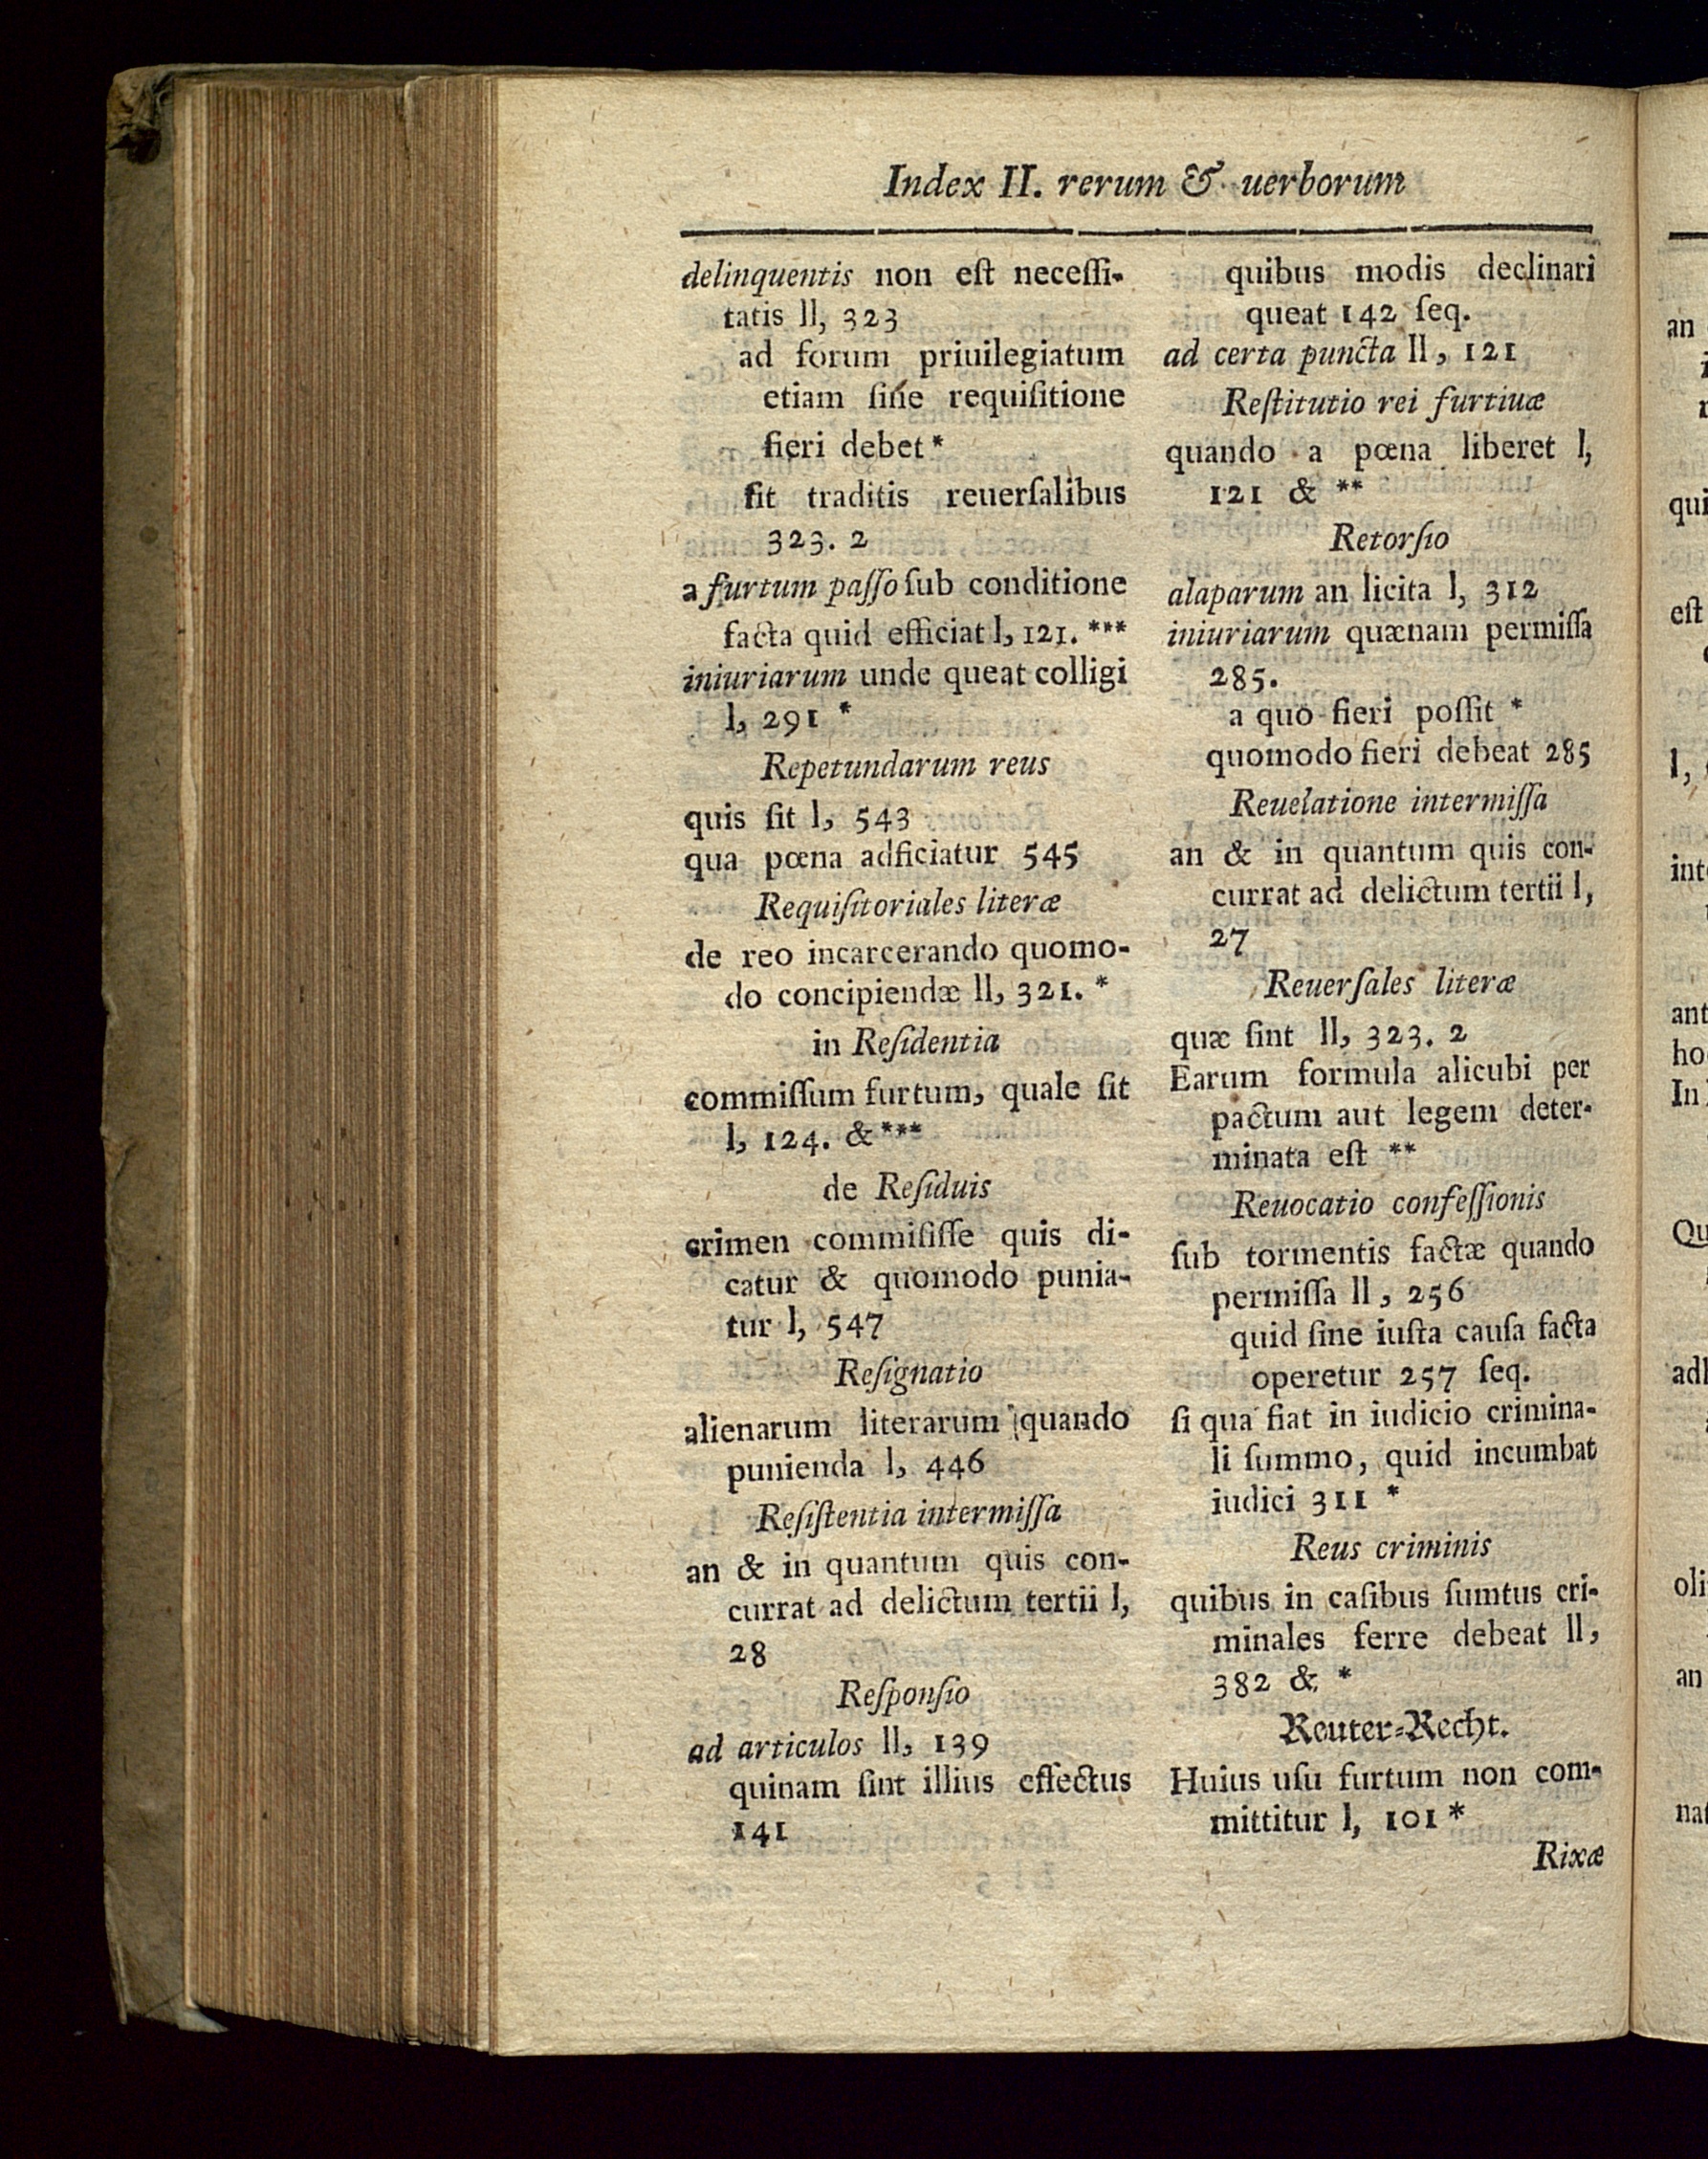 Index II. rerum & uerborum
delinquentis non eſt neceſſi-
tatis ll, 323
ad forum priuilegiatum
etiam ſine requiſitione
fieri debet *
fit traditis reuerſalibus
323. 2
a furtum paſſo ſub conditione
facta quid efficiat l, 121. ***
iniuriarum unde queat colligi
l, 291 *
Repetundarum reus
quis ſit l, 543
qua pœna adficiatur 545
Requiſitoriales literæ
de reo incarcerando quomo-
do concipiendæ ll, 321. *
in Reſidentia
commiſſum furtum, quale ſit
l, 124. & ***
de Reſiduis
crimen commiſiſſe quis di-
catur & quomodo punia-
tur l, 547
Reſignatio
alienarum literarum quando
punienda l, 446
Reſiſtentia intermiſſa
an & in quantum quis con-
currat ad delictum tertii l,
28
Reſponſio
ad articulos ll, 139
quinam ſint illius effectus
141
quibus modis declinari
queat 142 ſeq.
ad certa puncta ll, 121
Reſtitutio rei furtiuæ
quando a pœna liberet l,
121 & **
Retorſio
alaparum an licita l, 312
iniuriarum quænam permiſſa
285.
a quo fieri poſſit *
quomodo fieri debeat 285
Reuelatione intermiſſa
an & in quantum quis con-
currat ad delictum tertii l,
27
Reuerſales literæ
quæ ſint ll, 323. 2
Earum formula alicubi per
pactum aut legem deter-
minata eſt **
Reuocatio confeſſionis
ſub tormentis factæ quando
permiſſa ll, 256
quid ſine iuſta cauſa facta
operetur 257 ſeq.
ſi qua fiat in iudicio crimina-
li ſummo, quid incumbat
iudici 311 *
Reus criminis
quibus in caſibus ſumtus cri-
minales ferre debeat ll,
382 & *
Reuter-Recht.
Huius uſu furtum non com-
mittitur l, 101 *
Rixæ